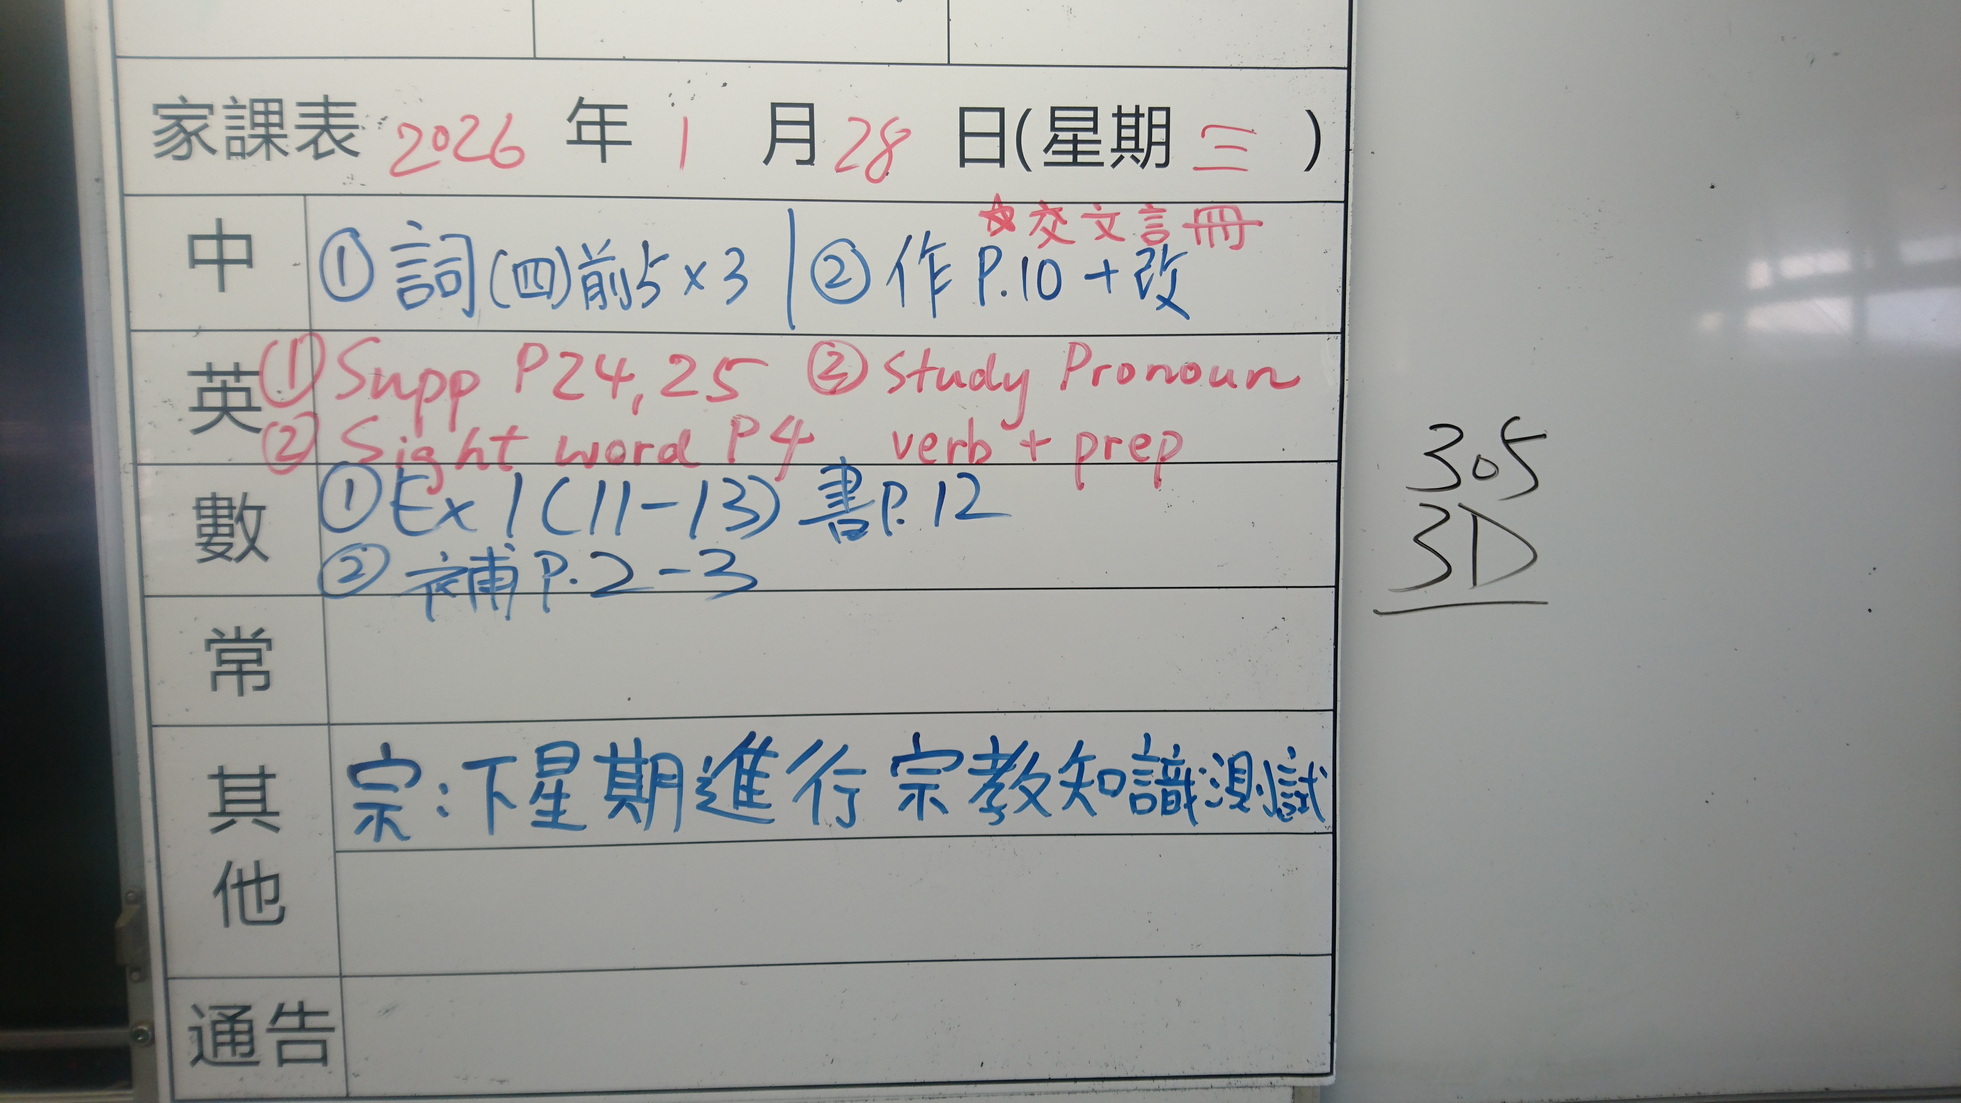 家課表 2026 年 1 月 28 日(星期 三 )
☆交文言冊
中 ① 詞(四)前5×3 | ② 作 P.10 + 改
英 ① Supp P24, 25 ③ Study Pronoun
② Sight word P4 verb + prep
數 ① Ex 1 (11-13) 書P.12
② 補P.2-3
常
其他 宗:下星期進行宗教知識測試
通告
305
3D